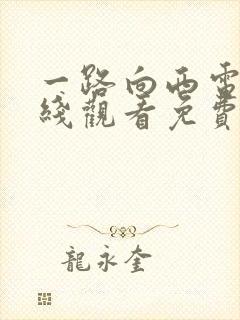 一路向西電
綫觀看免費
龍永奎